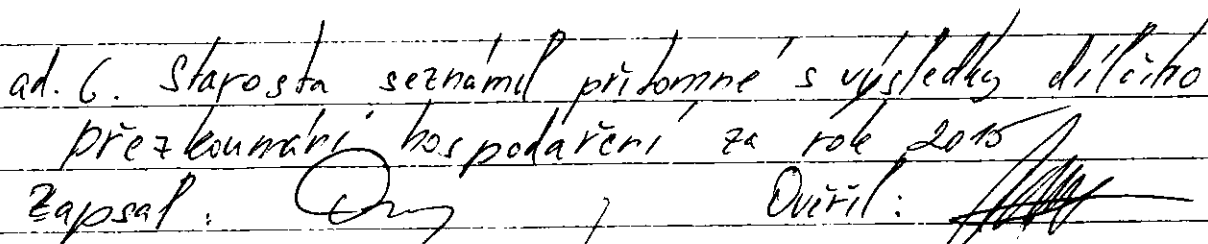 ad. 6. Starosta seznámil přítomné s výsledky dílčího
přezkoumání hospodaření za rok 2015
Zapsal: Ověřil: